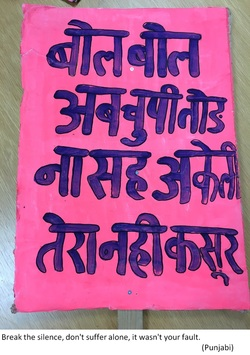 बोल बोल
अब चुपी तोड
ना सह अकेली
तेरा नही कसूर
Break the silence, don't suffer alone, it wasn't your fault.
(Punjabi)